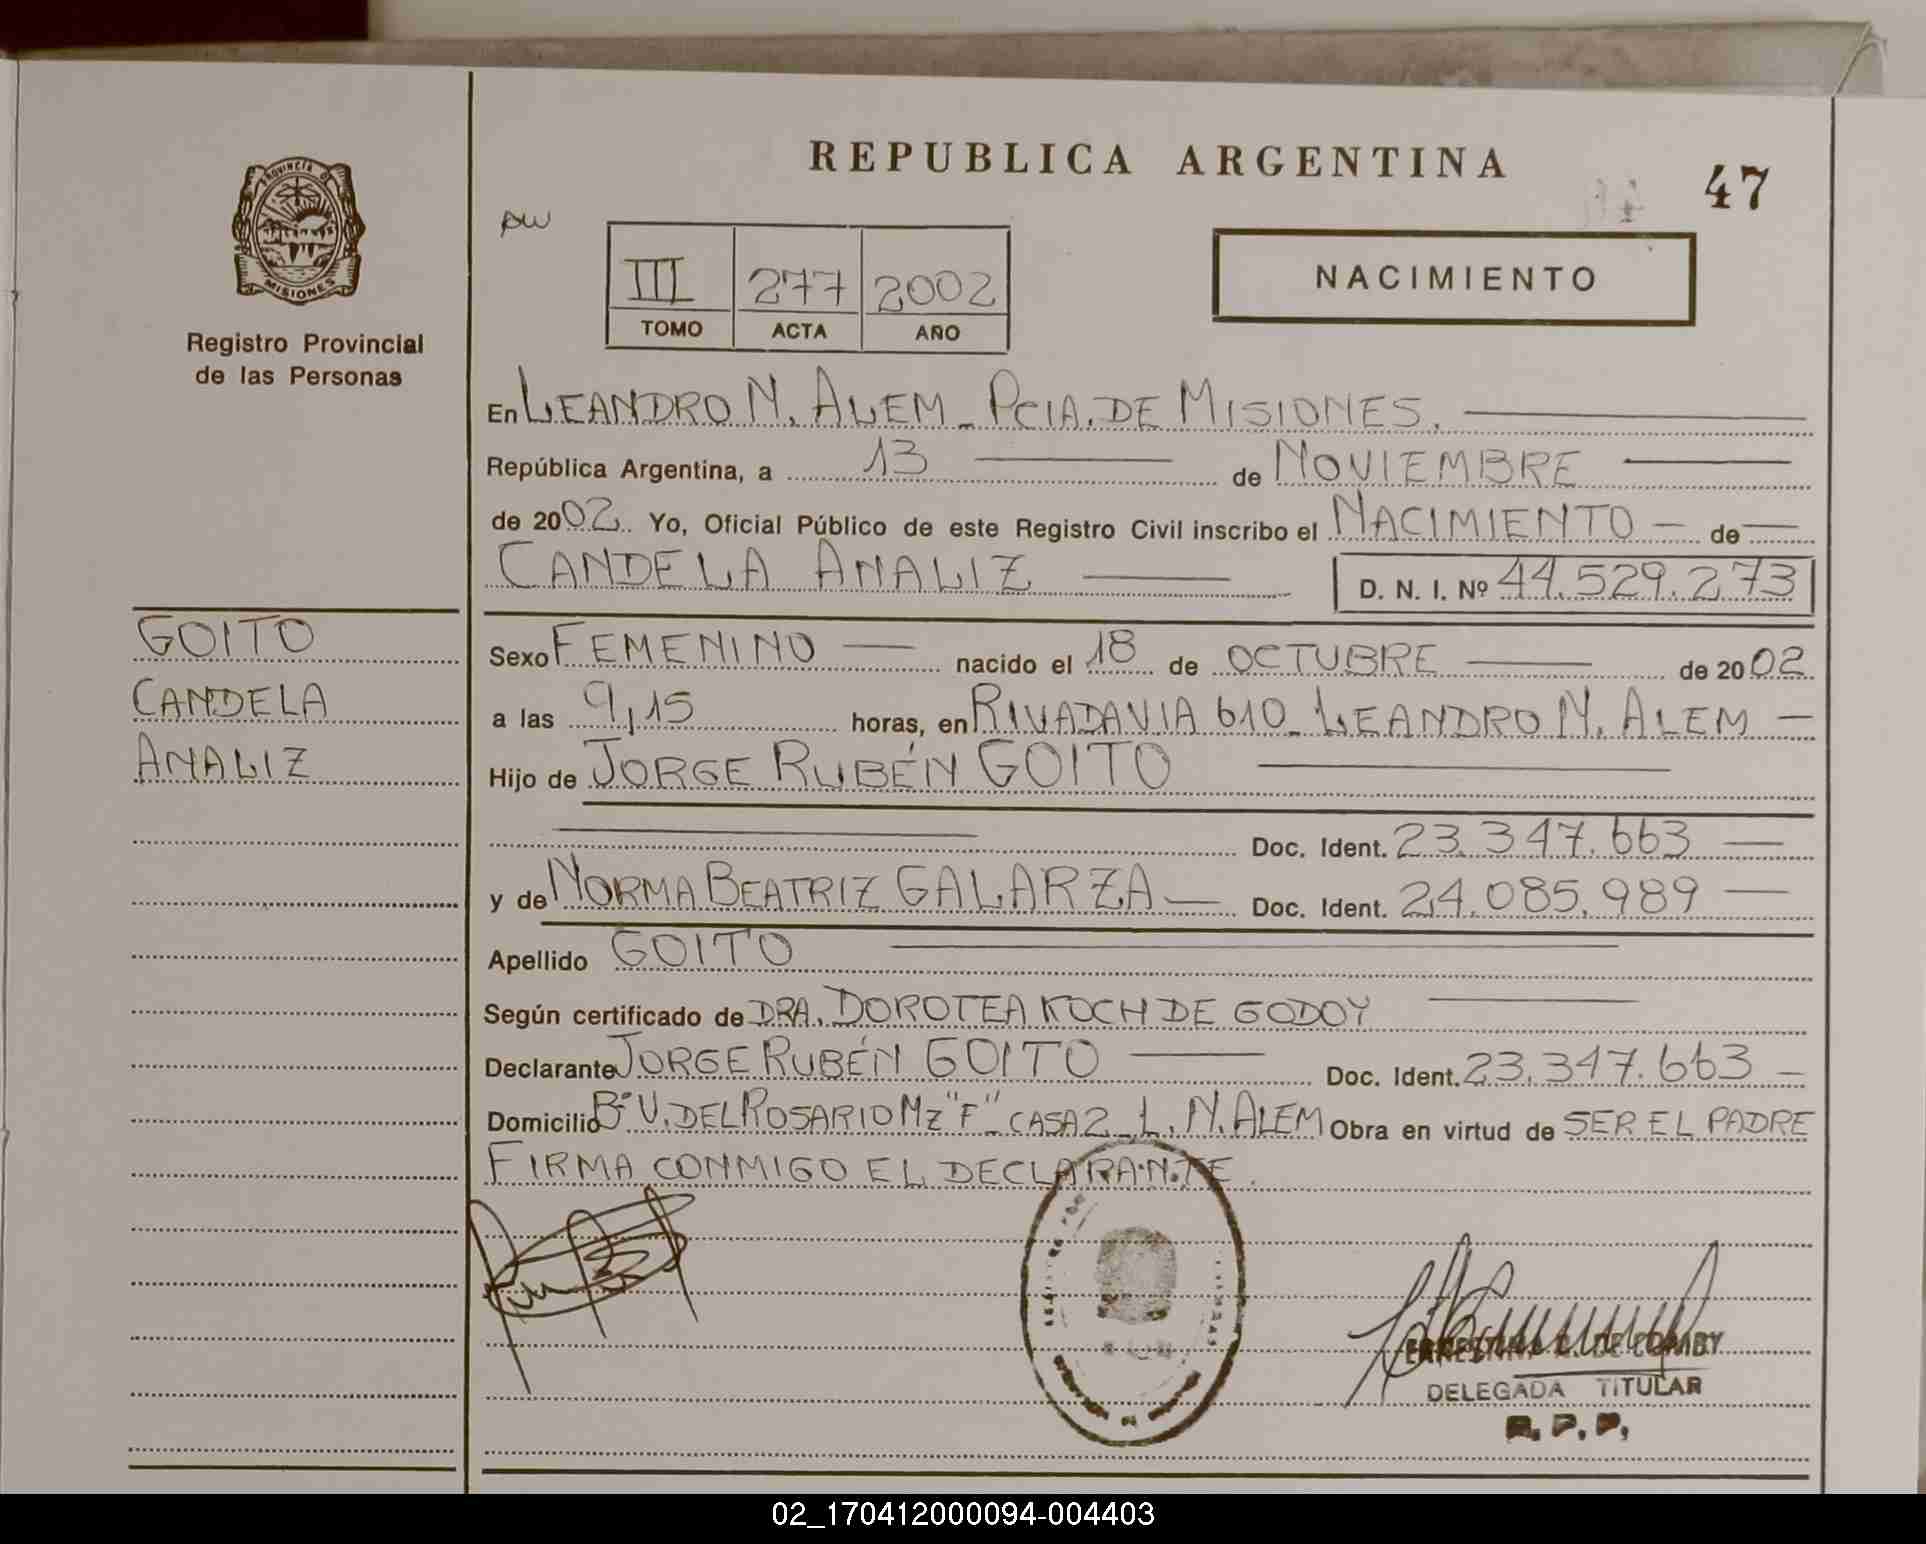 REPUBLICA ARGENTINA
47
PROVINCIA DE
MISIONES
Registro Provincial
de las Personas
III 277 2002
TOMO ACTA AÑO
NACIMIENTO
En LEANDRO N. ALEM - PCIA. DE MISIONES.
República Argentina, a 13 de NOVIEMBRE
de 2002. Yo, Oficial Público de este Registro Civil inscribo el NACIMIENTO - de
CANDELA ANALIZ
D. N. I. Nº 44.529.273
GOITO
CANDELA
ANALIZ
Sexo FEMENINO nacido el 18 de OCTUBRE de 2002
a las 9,15 horas, en RIVADAVIA 610 - LEANDRO N. ALEM -
Hijo de JORGE RUBÉN GOITO
Doc. Ident. 23.347.663
y de NORMA BEATRIZ GALARZA Doc. Ident. 24.085.989
Apellido GOITO
Según certificado de DRA. DOROTEA KOCH DE GODOY
Declarante JORGE RUBÉN GOITO Doc. Ident. 23.347.663 -
Domicilio Bº V. DEL ROSARIO MZ "F" CASA 2 - L. N. ALEM Obra en virtud de SER EL PADRE
FIRMA CONMIGO EL DECLARANTE.
DELEGADA TITULAR
R. P. P.
02_170412000094-004403